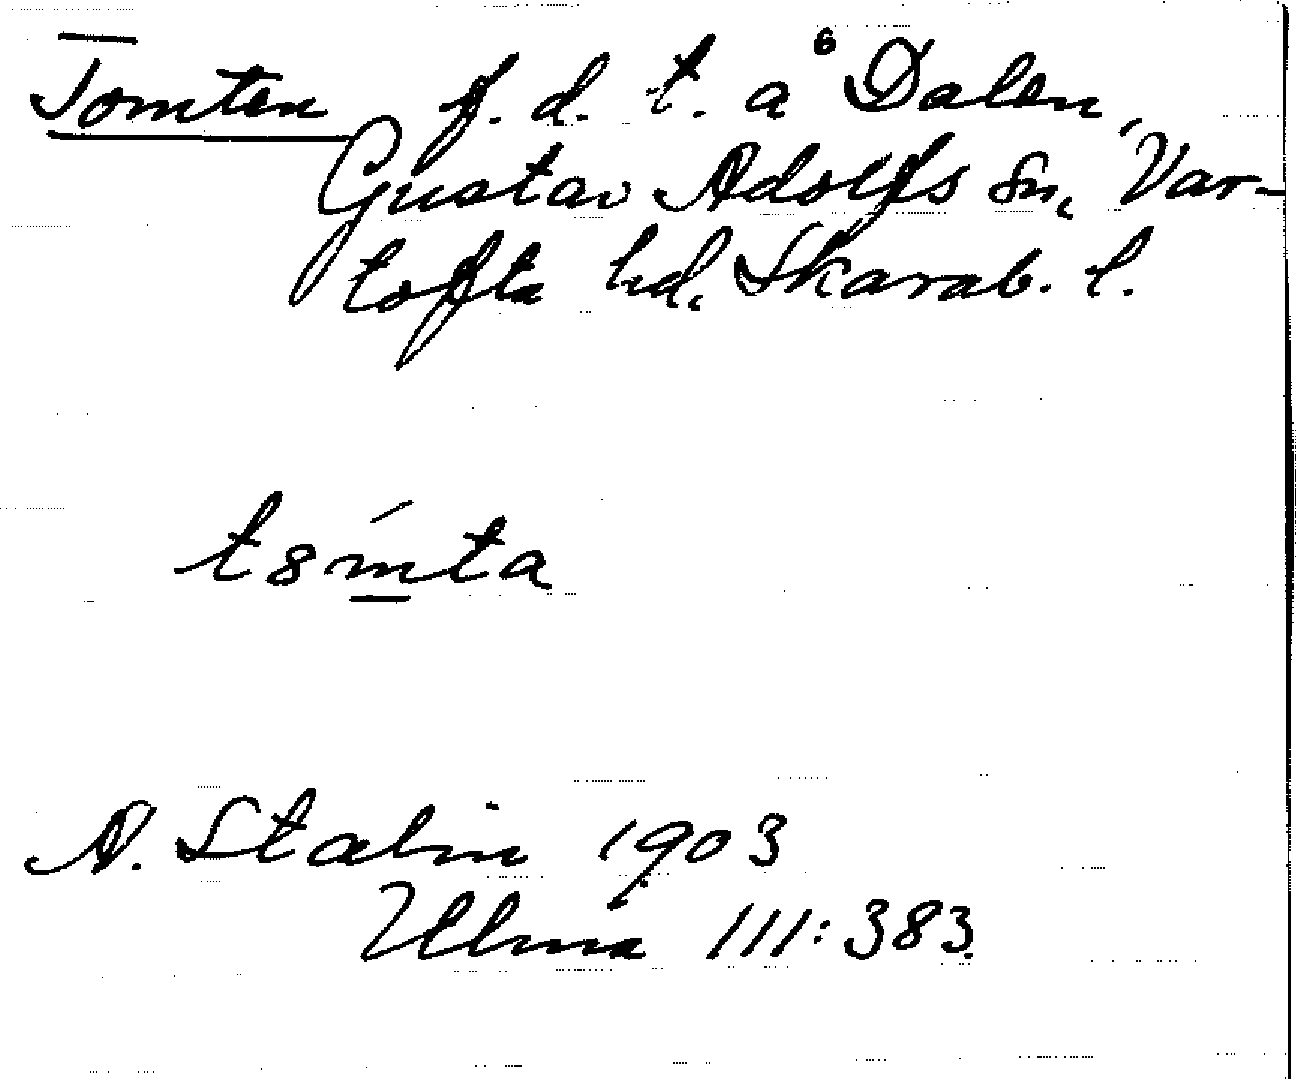 Tomten f. d. t. å Dalen,
Gustav Adolfs sn, Var-
tofta hd, Skarab. l.
t8mta
A. Stalin 1903
Ulma 111:383